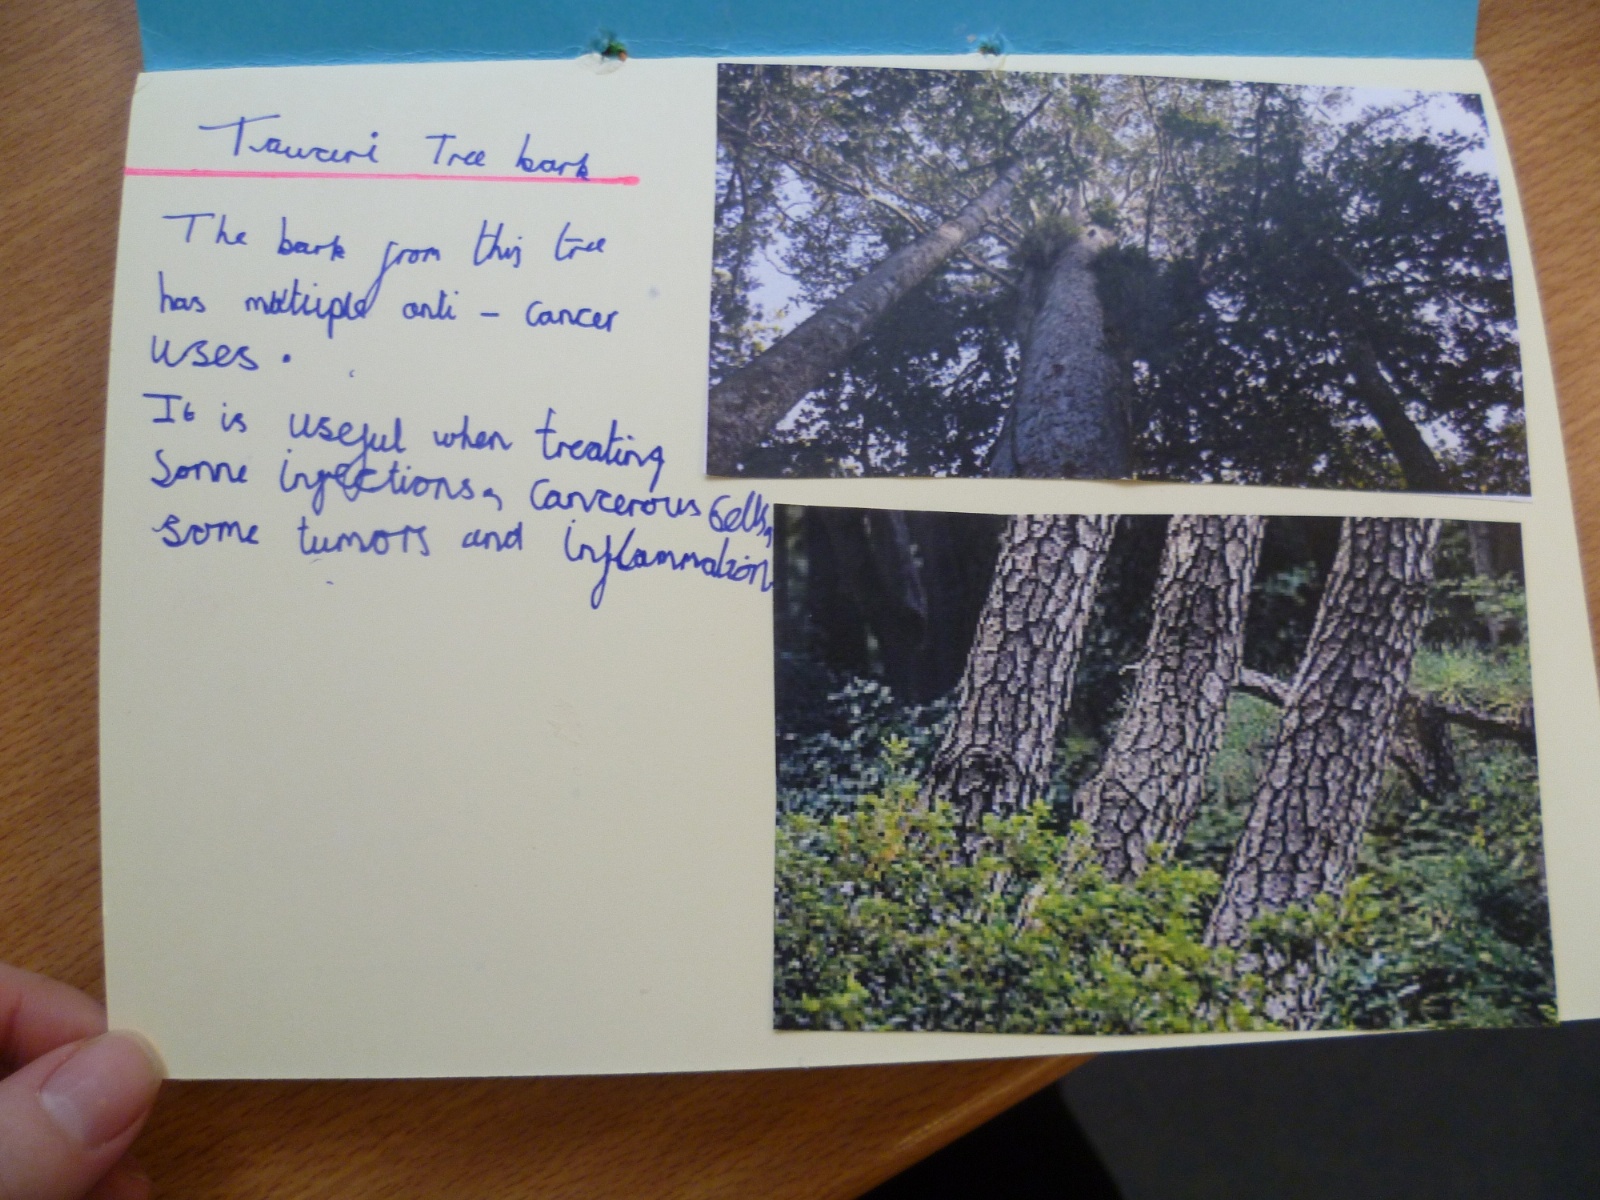 Tawari Tree bark
The bark from this tree
has multiple anti - cancer
uses.
It is useful when treating
some infections, cancerous cells,
some tumors and inflammation